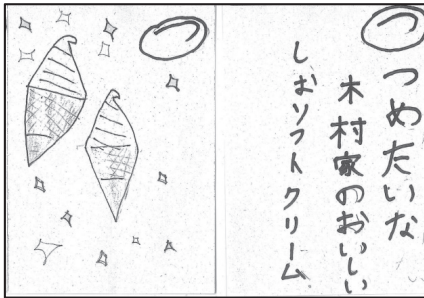 つ
つめたいな
木村家のおいしい
しおソフトクリーム